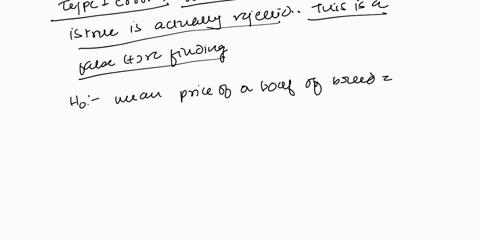 Type I error
is true is actually rejected. This is a
false (+)ve finding
H₀:- mean price of a loaf of bread =